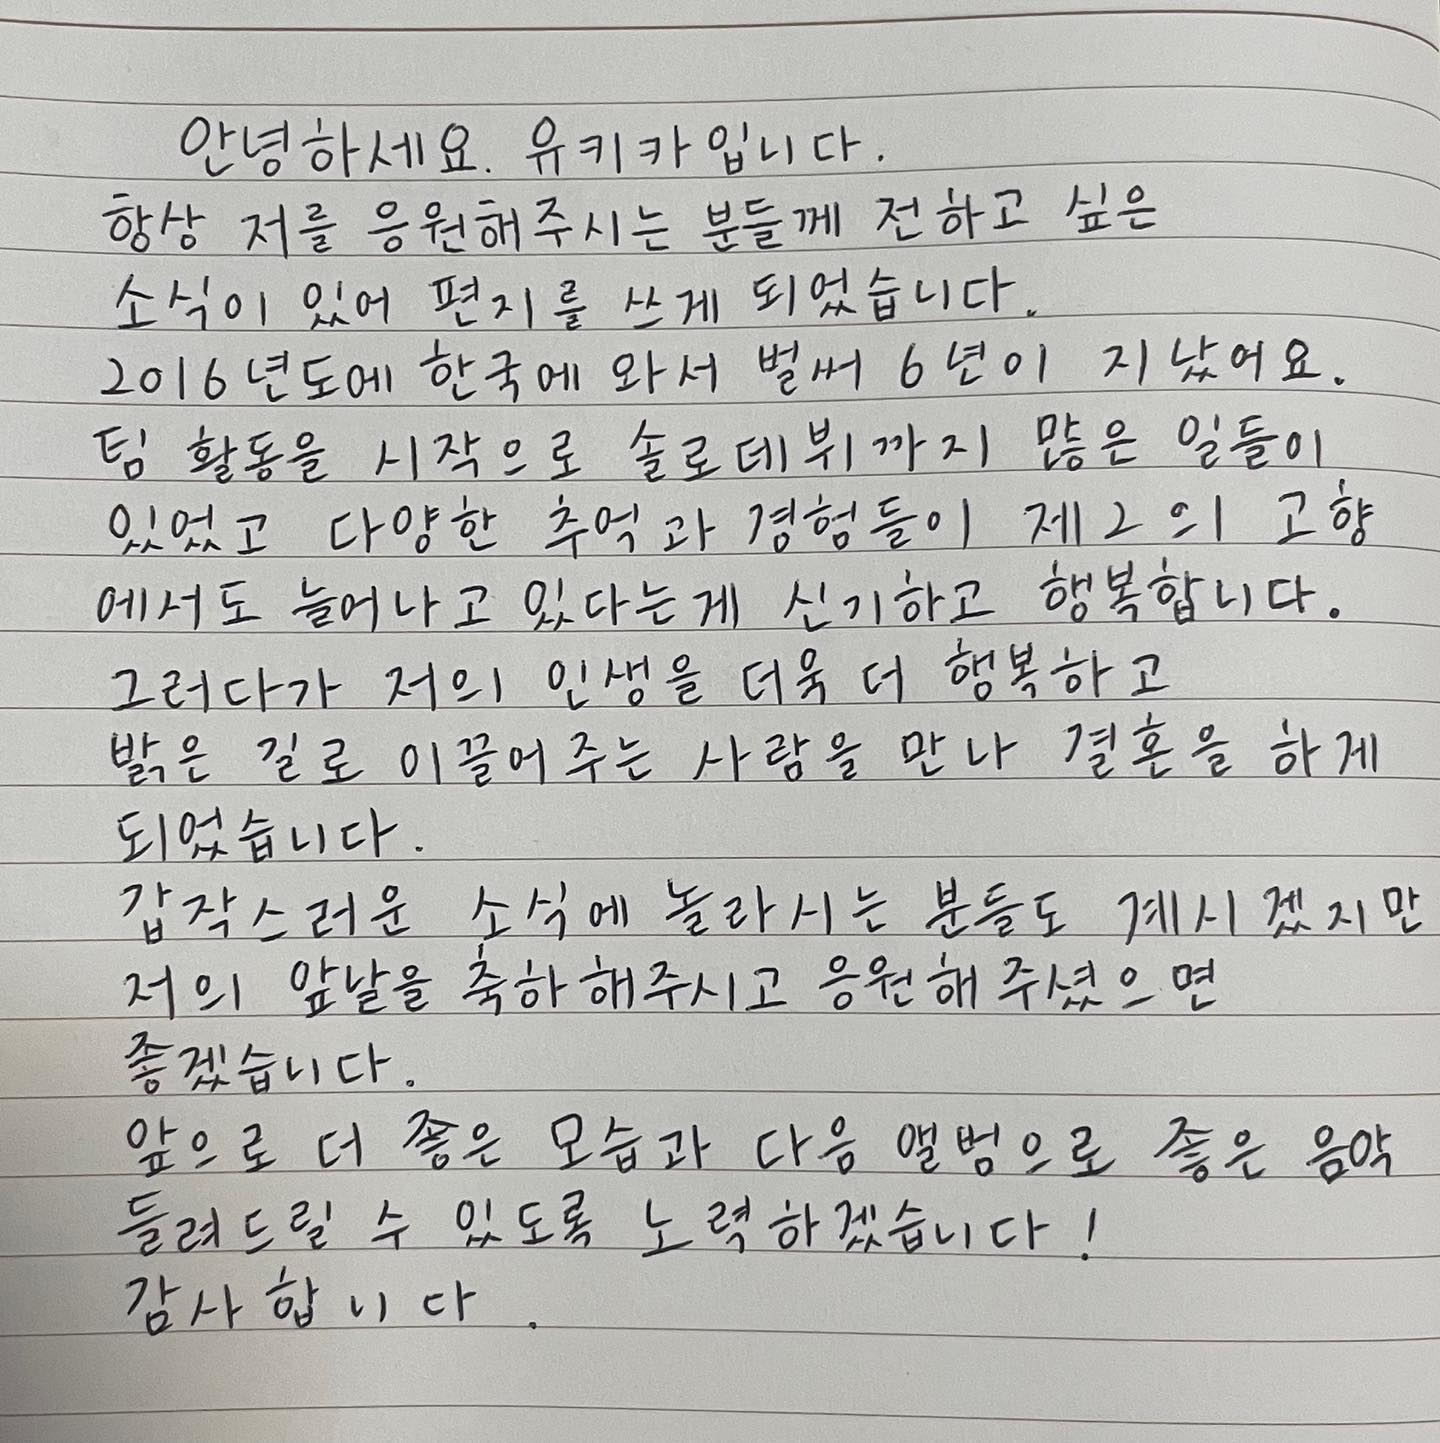 안녕하세요. 유키카입니다.
항상 저를 응원해주시는 분들께 전하고 싶은
소식이 있어 편지를 쓰게 되었습니다.
2016년도에 한국에 와서 벌써 6년이 지났어요.
팀 활동을 시작으로 솔로데뷔까지 많은 일들이
있었고 다양한 추억과 경험들이 제2의 고향
에서도 늘어나고 있다는게 신기하고 행복합니다.
그러다가 저의 인생을 더욱 더 행복하고
밝은 길로 이끌어주는 사람을 만나 결혼을 하게
되었습니다.
갑작스러운 소식에 놀라시는 분들도 계시겠지만
저의 앞날을 축하해주시고 응원해주셨으면
좋겠습니다.
앞으로 더 좋은 모습과 다음 앨범으로 좋은 음악
들려드릴 수 있도록 노력하겠습니다!
감사합니다.